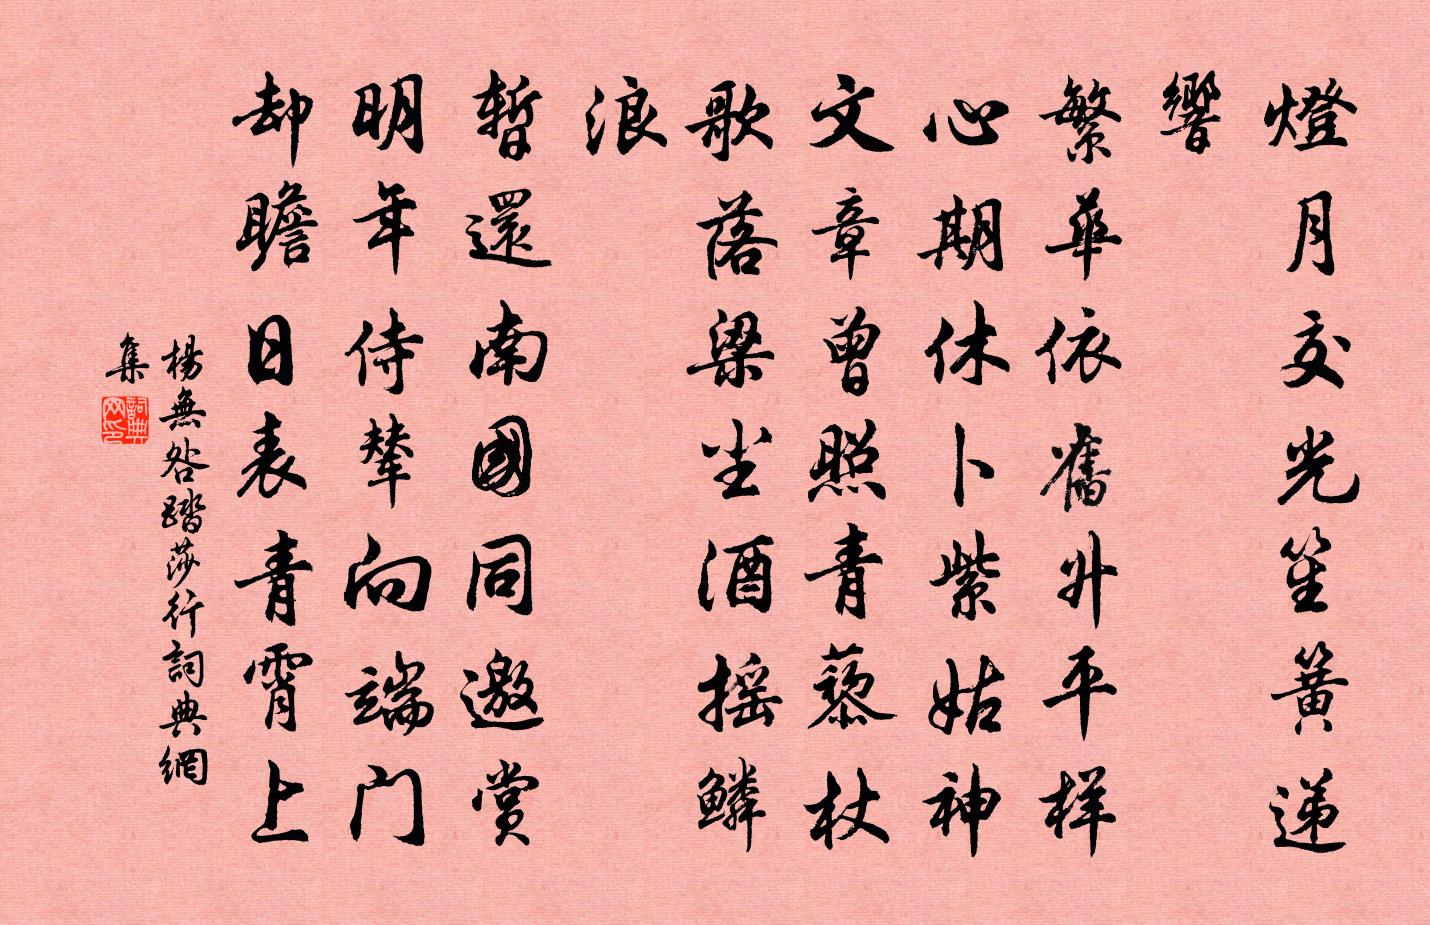 燈月交光笙簧递
響
繁華依舊升平様
心期休卜紫姑神
文章曾照青藜杖
歌落梁尘酒摇鱗
浪
暫還南國同邀賞
明年侍輦向端门
却瞻日表青霄上
楊無咎踏莎行詞典網
集
詞典网印